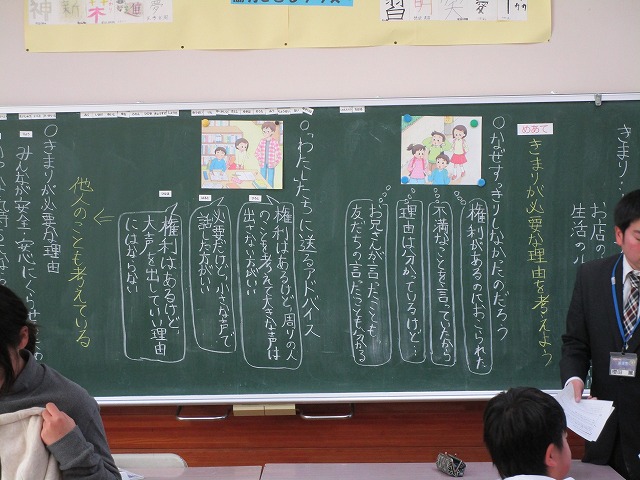 きまり…
お店の
生活の
めあて
きまりが必要な理由を考えよう
○なぜすっきりしなかったのだろう
権利があるのにおこられた
不満なことを言っていたから
理由は分かっているけど…
お兄さんが言ったことも
友だちの言ったことも分かる
○わたしたちに送るアドバイス
権利はあるけど、周りの人
のことも考えて大きな声は
出さない方がいい
必要だけど、小さな声で
話した方がいい
権利はあるけど、
大声を出していい理由
にはならない
他人のことも考えている
○きまりが必要な理由
みんなが安全・安心にくらせ
神
新
夢
習
明
笑
愛